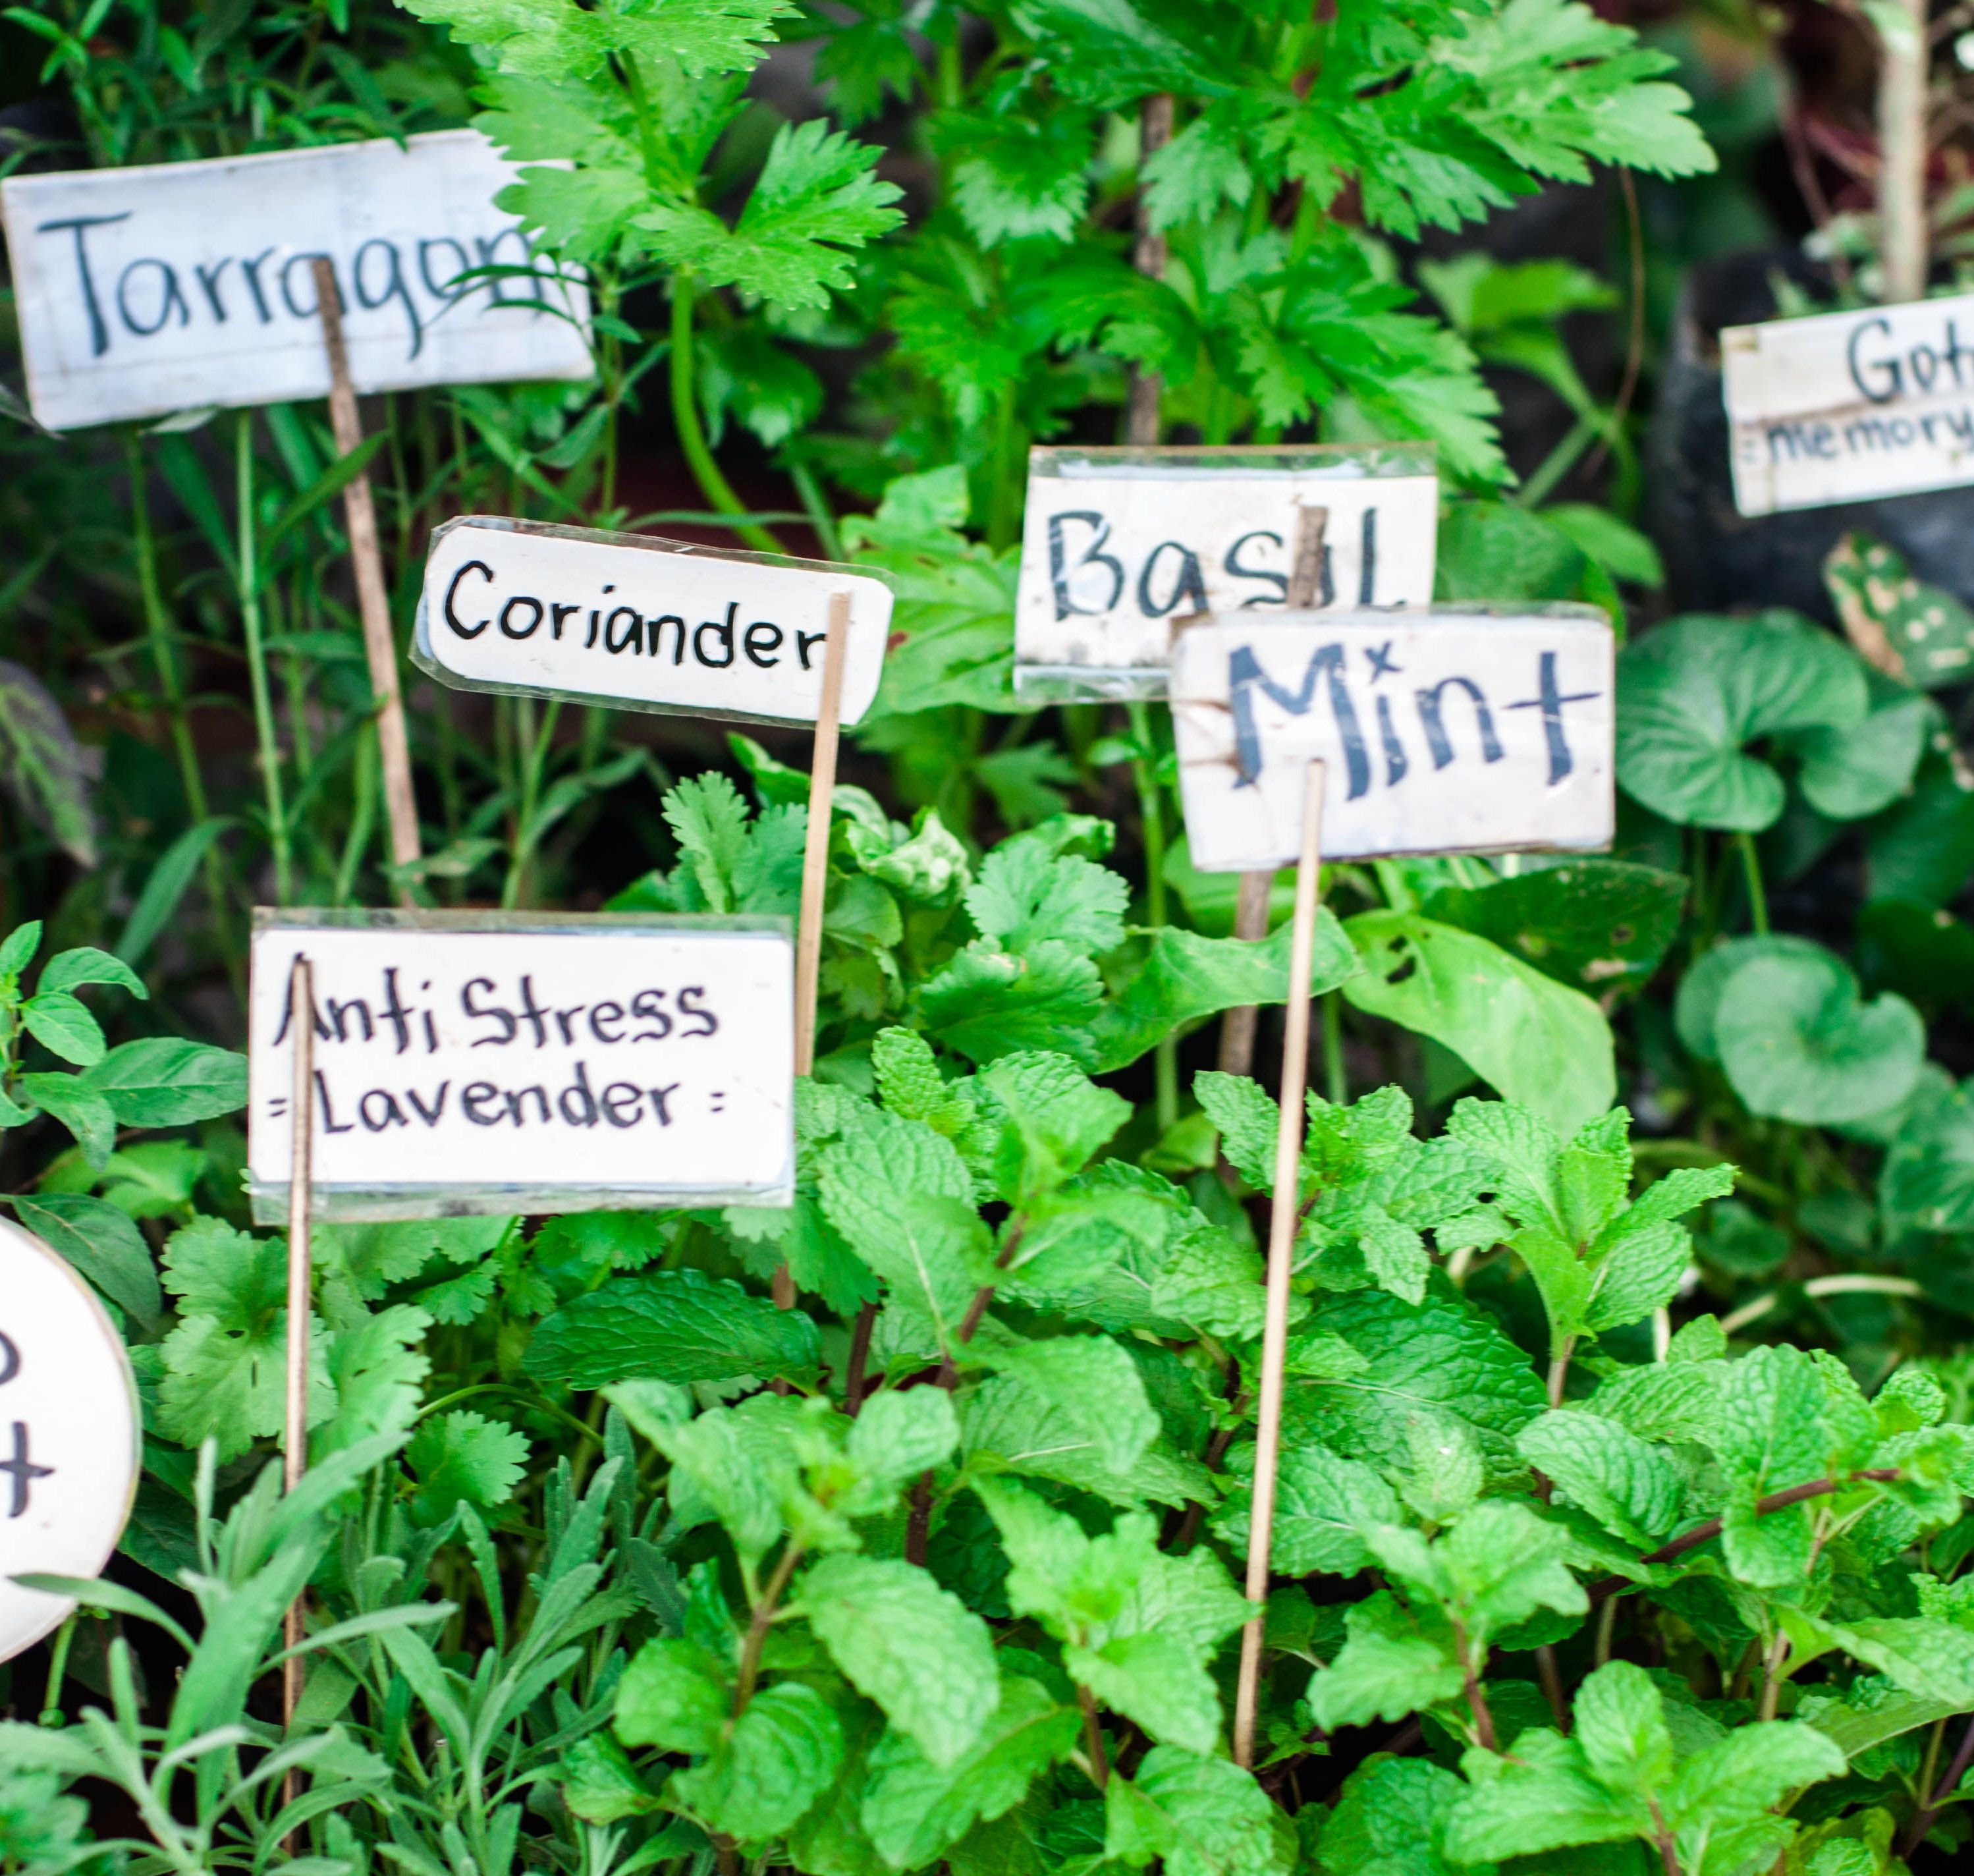 Tarragon
Coriander
Basil
Mint
Anti Stress
= Lavender =